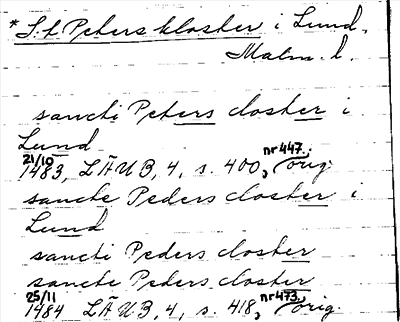 * S:t Peters kloster i Lund.
Malm. l.
sancti Peters closter i
Lund
21/10 1483, LÄUB, 4, s. 400, nr 447; orig.
sancte Peders closter i
Lund
sancti Peders closter
sancte Peders closter
25/11 1484 LÄUB, 4, s. 418, nr 473, orig.